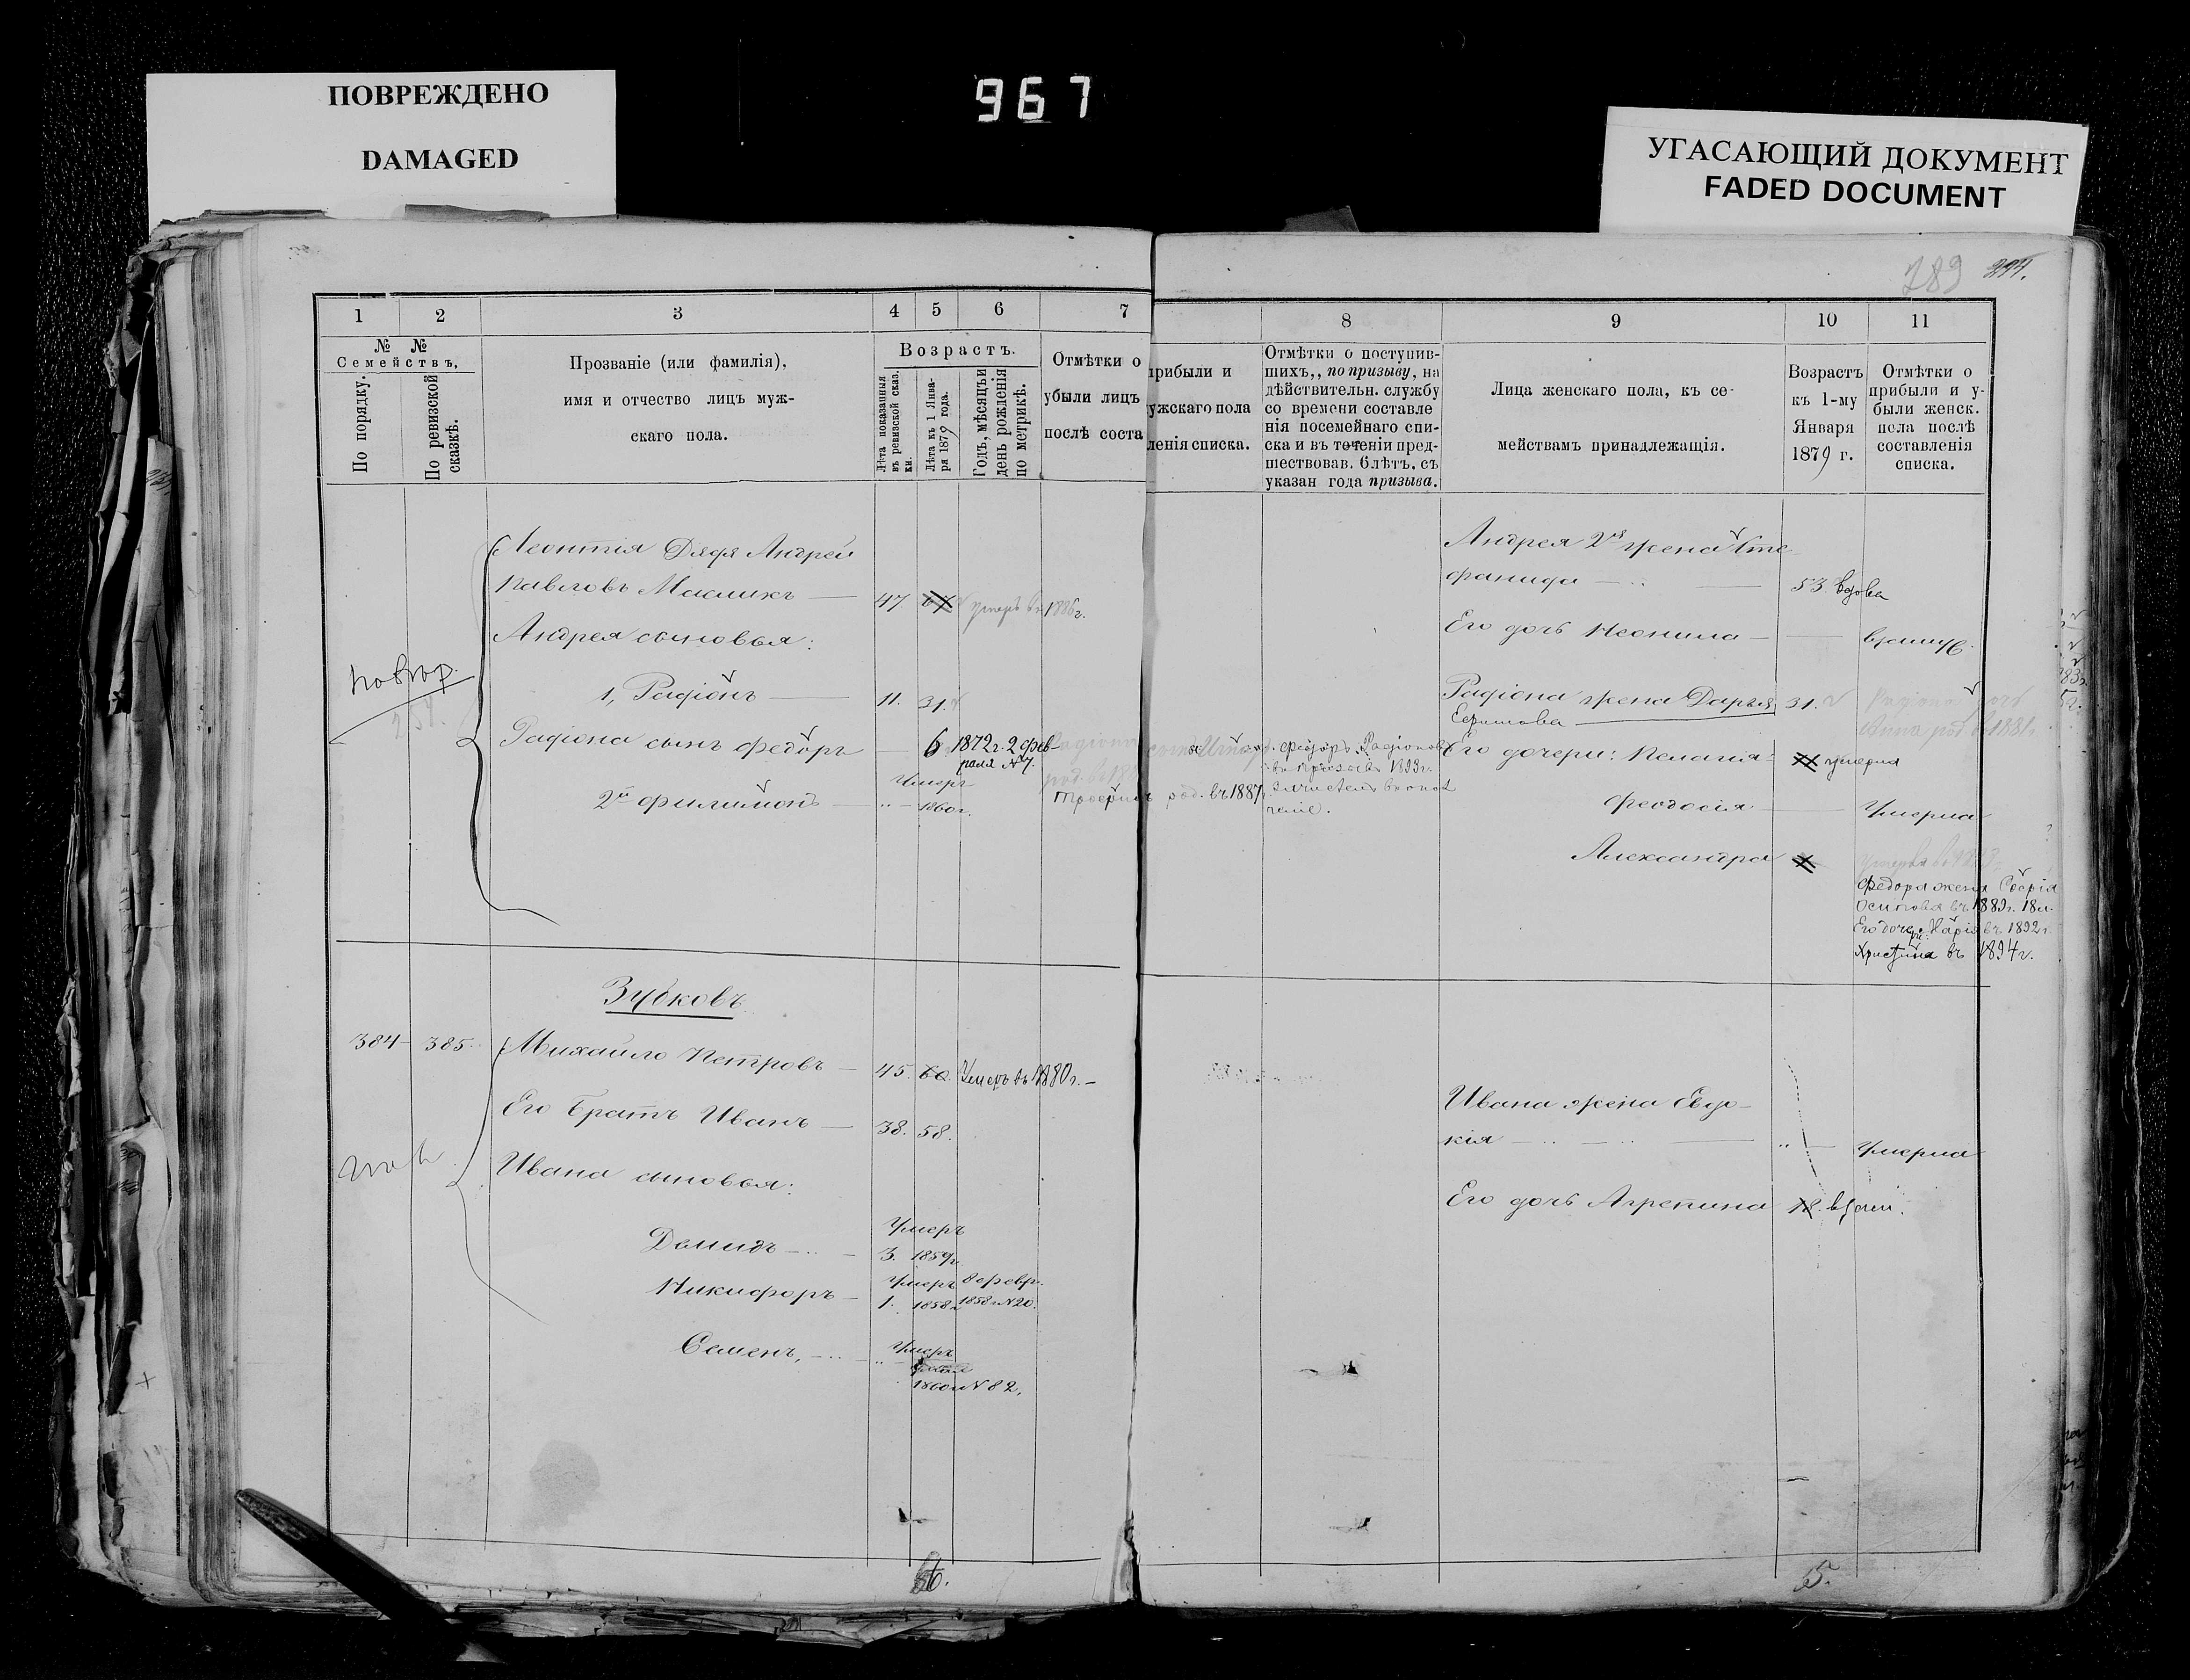 ПОВРЕЖДЕНО
DAMAGED
967
УГАСАЮЩИЙ ДОКУМЕНТ
FADED DOCUMENT
789 294.
1 2 3 4 5 6 7
№ № Семействъ,
По порядку.
По ревизской сказкѣ.
Прозваніе (или фамилія),
имя и отчество лицъ муж-
скаго пола.
Возрастъ.
Лѣта показанныя въ ревизской сказ. ки.
Лѣта къ 1 Янва- ря 1879 года.
Годъ, мѣсяцъ и день рожденія по метрикѣ.
Отмѣтки о прибыли и
убыли лицъ мужскаго пола
послѣ составленія списка.
8 9 10 11
Отмѣтки о поступив-
шихъ,, по призыву, на
дѣйствительн. службу
со времени составле
нія посемейнаго спи-
ска и въ теченіи пред-
шествовав. 6 лѣтъ, съ
указан года призыва.
Лица женскаго пола, къ се-
мействамъ принадлежащія.
Возрастъ
къ 1-му
Января
1879 г.
Отмѣтки о
прибыли и у-
были женск.
пола послѣ
составленія
списка.
Леонтія Дядя Андрей
Павловъ Масликъ — 47 умеръ въ 1886 г.
Андрея сыновья:
1, Радіонъ — 11. 31.
Радіона сынъ Федоръ — 6 1872 г. 2 фев-
раля № 7.
2й Филимонъ — " — Умеръ 1860 г.
Трофимъ род. въ 1887 г.
Федоръ Радіоновъ
въ призывъ 1893 г.
зачисленъ в опол
чение.
Андрея 2я жена Сте
фанида — 53. вдова
Его дочь Неонила —
Радіона жена Дарья 31.
Ефимова
Радіона дочь
Анна род. въ 1881 г.
Его дочери: Пелагія умерла
Феодосія — Умерла
Александра
Федора жена Софія
Осипова въ 1889 г. 18 л.
Его дочери: Марія въ 1892 г.
Христина въ 1894 г.
Зубковъ
384 385. Михайло Петровъ — 45. 60. Умеръ въ 1880 г. —
Его братъ Иванъ — 38. 58.
Ивана сыновья:
Демидъ — 3. Умеръ 1859 г.
Никифоръ — 1. Умеръ 1858 г. 8 февр. 1858 г. № 20.
Семенъ, — Умеръ
1860 г. № 82.
Ивана жена Евдо-
кія — Умерла
Его дочь Агрепина 18.
6.
5.